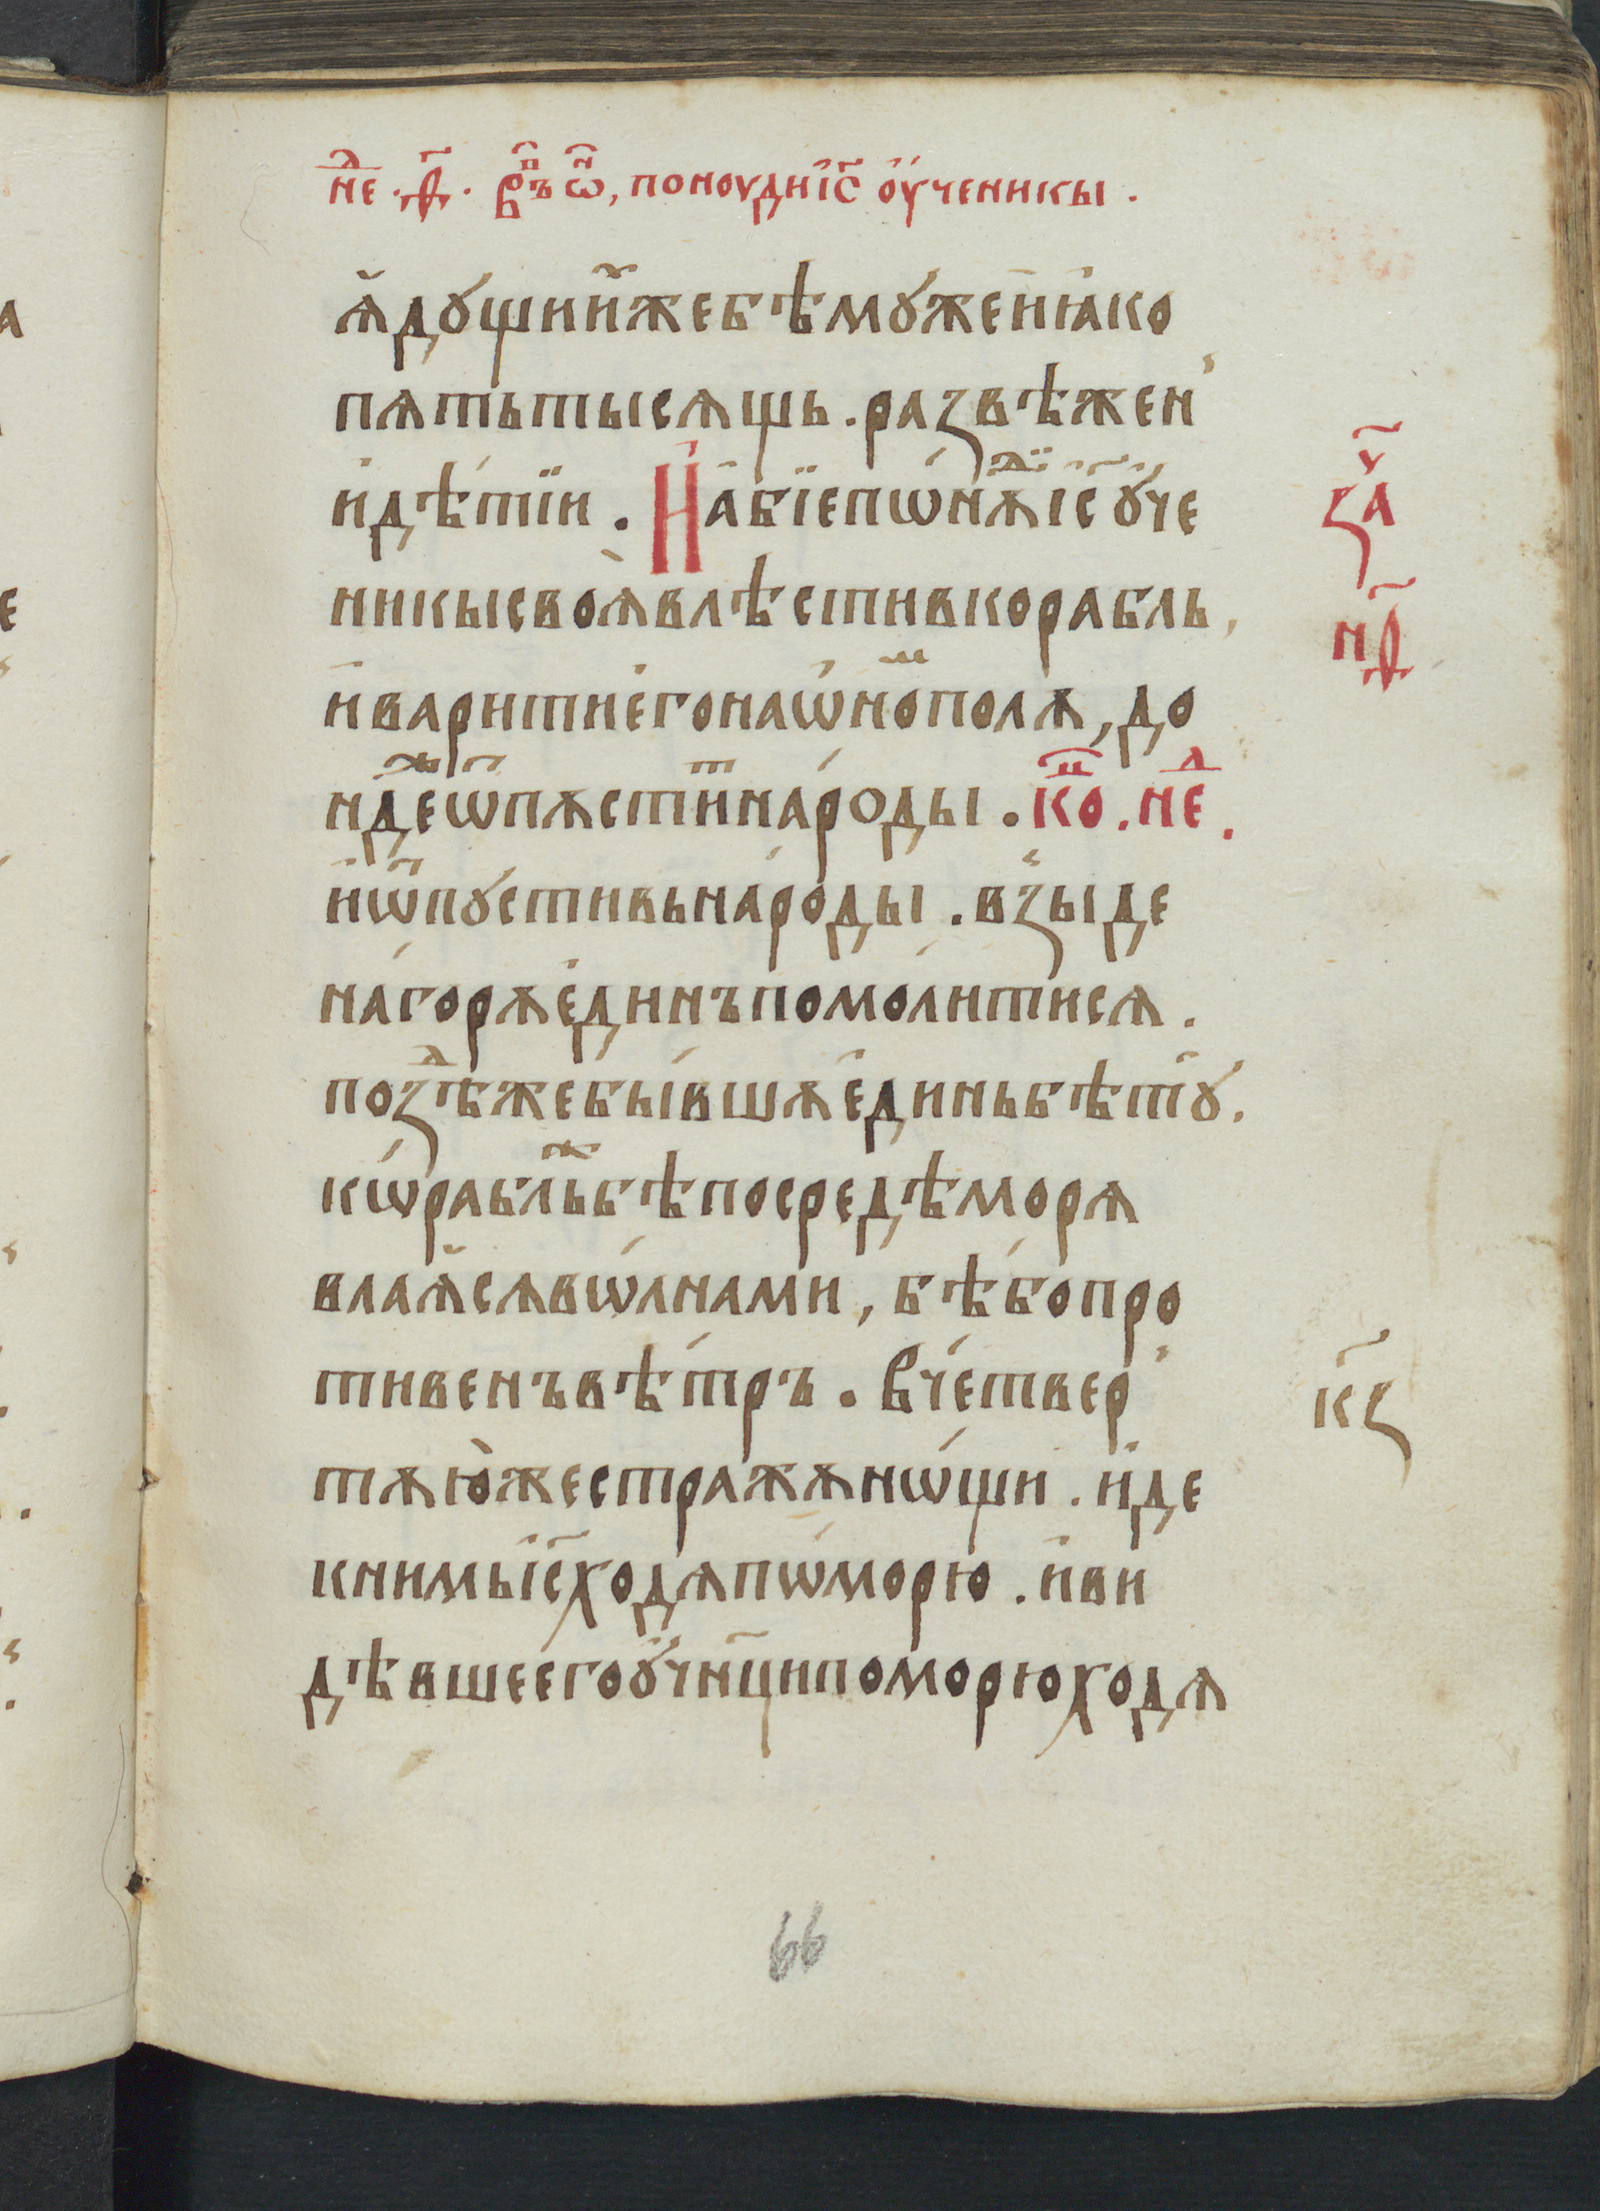 не҃д .ѳ҃. врⷨъ ѡ҃н, поноуди і҃с оу҆ченикы .
ꙗ҆дꙋщии҆ж҆ бѣ мꙋжені ꙗко
пѧть тысѧщь . развѣ жен
и҆ дѣтїи . И҆ абїе пѡнѫⷣї і҃с ᲂу҆че
никы своѧ҆ влѣсти в корабль,
и҆ варити е҆го на ѡ҆ноⷨ полѫ, до
н҆деⷤ ѿпѫстиⷮ народы . коⷩ҇ . неⷣ .
и҆ ѿпꙋстивь народы . взыде
на горѫ е҆динъ помолитисѧ .
поздⷣѣ же бывшѫ е҆динь бѣ тꙋ .
кѡрабльⷤ бѣ посредѣ морѧ
влаѧ҆сѧ вѡлнами, бѣ бо про
тивенъ вѣтръ . Вчетвер
тѫю҆же стражѫ нѡщи . и҆де
к нимь і҃с ходѧ пѡ морю . и҆ ви
дѣвше е҆го ᲂу҆чн҃ци по морю ходѧ
за҃ч
н҃ѳ
к҃ѕ
66